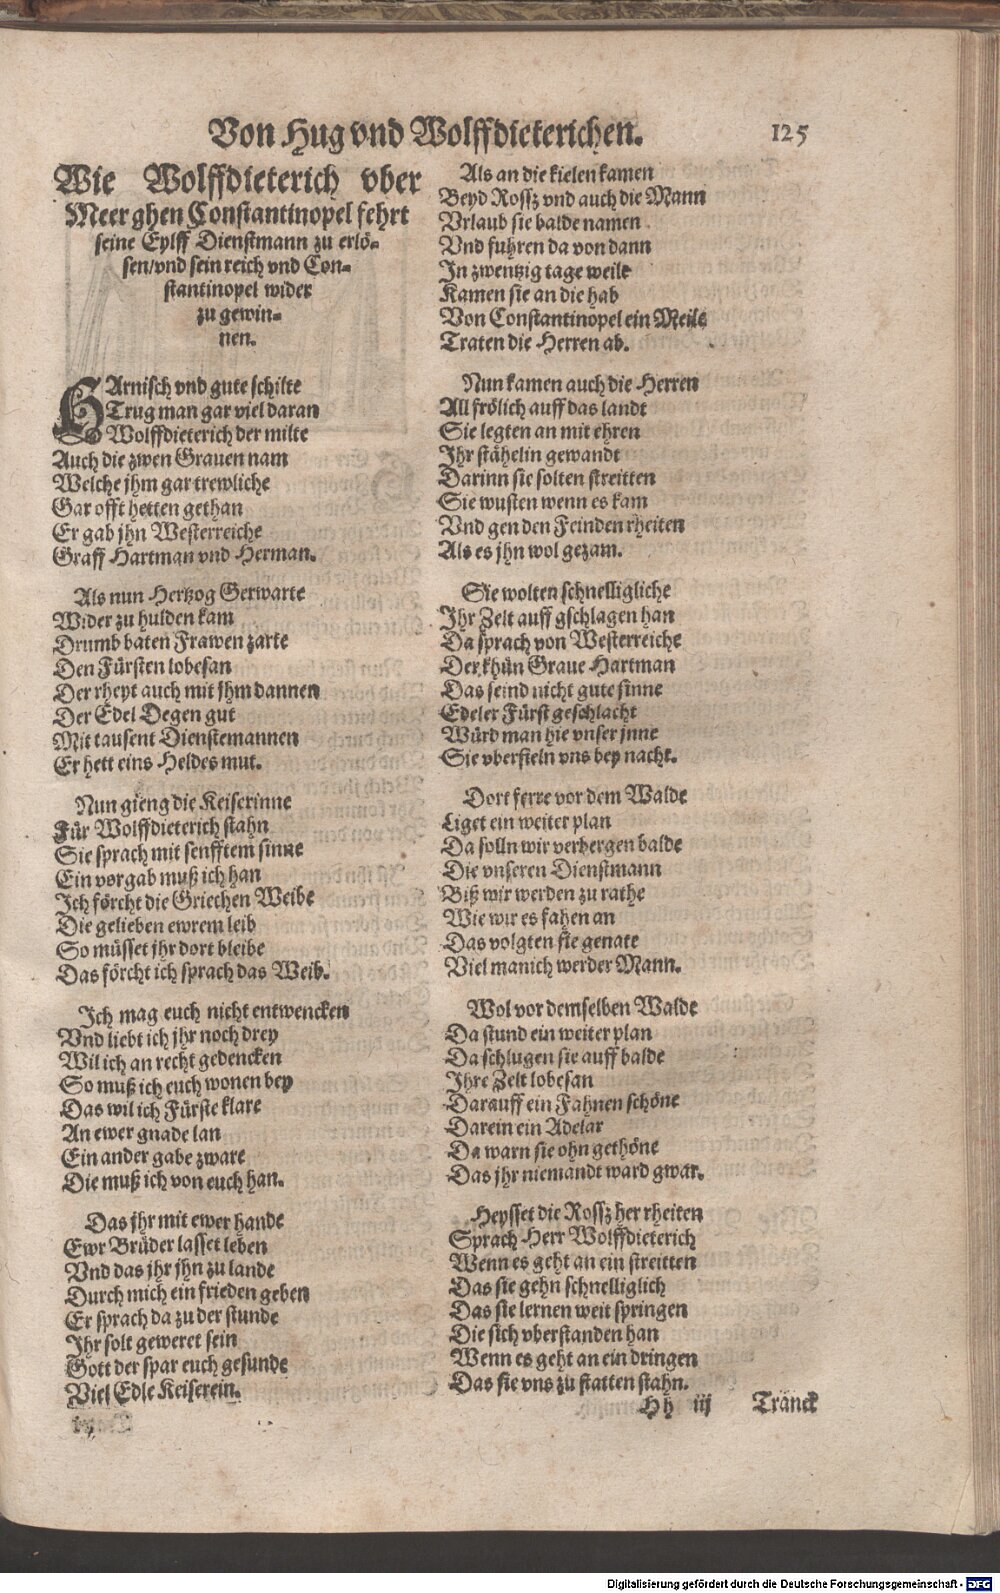 Von Hug vnd Wolffdieterichen.
125
Wie Wolffdieterich vber
Meer ghen Constantinopel fehrt
seine Eylff Dienstmann zu erlö-
sen/vnd sein reich vnd Con-
stantinopel wider
zu gewin-
nen.
HArnisch vnd gute schilte
Trug man gar viel daran
Wolffdieterich der milte
Auch die zwen Grauen nam
Welche jhm gar trewliche
Gar offt hetten gethan
Er gab jhn Westerreiche
Graff Hartman vnd Herman.
Als nun Hertzog Gerwarte
Wider zu hulden kam
Drumb baten Frawen zarte
Den Fürsten lobesan
Der rheyt auch mit jhm dannen
Der Edel Degen gut
Mit tausent Dienstemannen
Er hett eins Heldes mut.
Nun gieng die Keiserinne
Für Wolffdieterich stahn
Sie sprach mit senfftem sinne
Ein vorgab muß ich han
Ich förcht die Griechen Weibe
Die gelieben ewrem leib
So müsset jhr dort bleibe
Das förcht ich sprach das Weib.
Ich mag euch nicht entwencken
Vnd liebt ich jhr noch drey
Wil ich an recht gedencken
So muß ich euch wonen bey
Das wil ich Fürste klare
An ewer gnade lan
Ein ander gabe zware
Die muß ich von euch han.
Das jhr mit ewer hande
Ewr Brüder lasset leben
Vnd das jhr jhn zu lande
Durch mich ein frieden geben
Er sprach da zu der stunde
Ihr solt geweret sein
Gott der spar euch gesunde
Viel Edle Keiserein.
Als an die kielen kamen
Beyd Rossz vnd auch die Mann
Vrlaub sie balde namen
Vnd fuhren da von dann
In zwentzig tage weile
Kamen sie an die hab
Von Constantinopel ein Meile
Traten die Herren ab.
Nun kamen auch die Herren
All frölich auff das landt
Sie legten an mit ehren
Ihr stähelin gewandt
Darinn sie solten streitten
Sie wusten wenn es kam
Vnd gen den Feinden rheiten
Als es jhn wol gezam.
Sie wolten schnelligliche
Ihr Zelt auff gschlagen han
Da sprach von Westerreiche
Der khün Graue Hartman
Das seind nicht gute sinne
Edeler Fürst geschlacht
Würd man hie vnser jnne
Sie vberfieln vns bey nacht.
Dort ferre vor dem Walde
Liget ein weiter plan
Da solln wir verbergen balde
Die vnseren Dienstmann
Biß wir werden zu rathe
Wie wir es fahen an
Das volgten sie genate
Viel manich werder Mann.
Wol vor demselben Walde
Da stund ein weiter plan
Da schlugen sie auff balde
Ihre Zelt lobesan
Darauff ein Fahnen schöne
Darein ein Adelar
Da warn sie ohn gethöne
Das jhr niemandt ward gwar.
Heysset die Rossz her rheiten
Sprach Herr Wolffdieterich
Wenn es geht an ein streitten
Das sie gehn schnelliglich
Das sie lernen weit springen
Die sich vberstanden han
Wenn es geht an ein dringen
Das sie vns zu statten stahn.
Hh iij Tränck
Digitalisierung gefördert durch die Deutsche Forschungsgemeinschaft - DFG